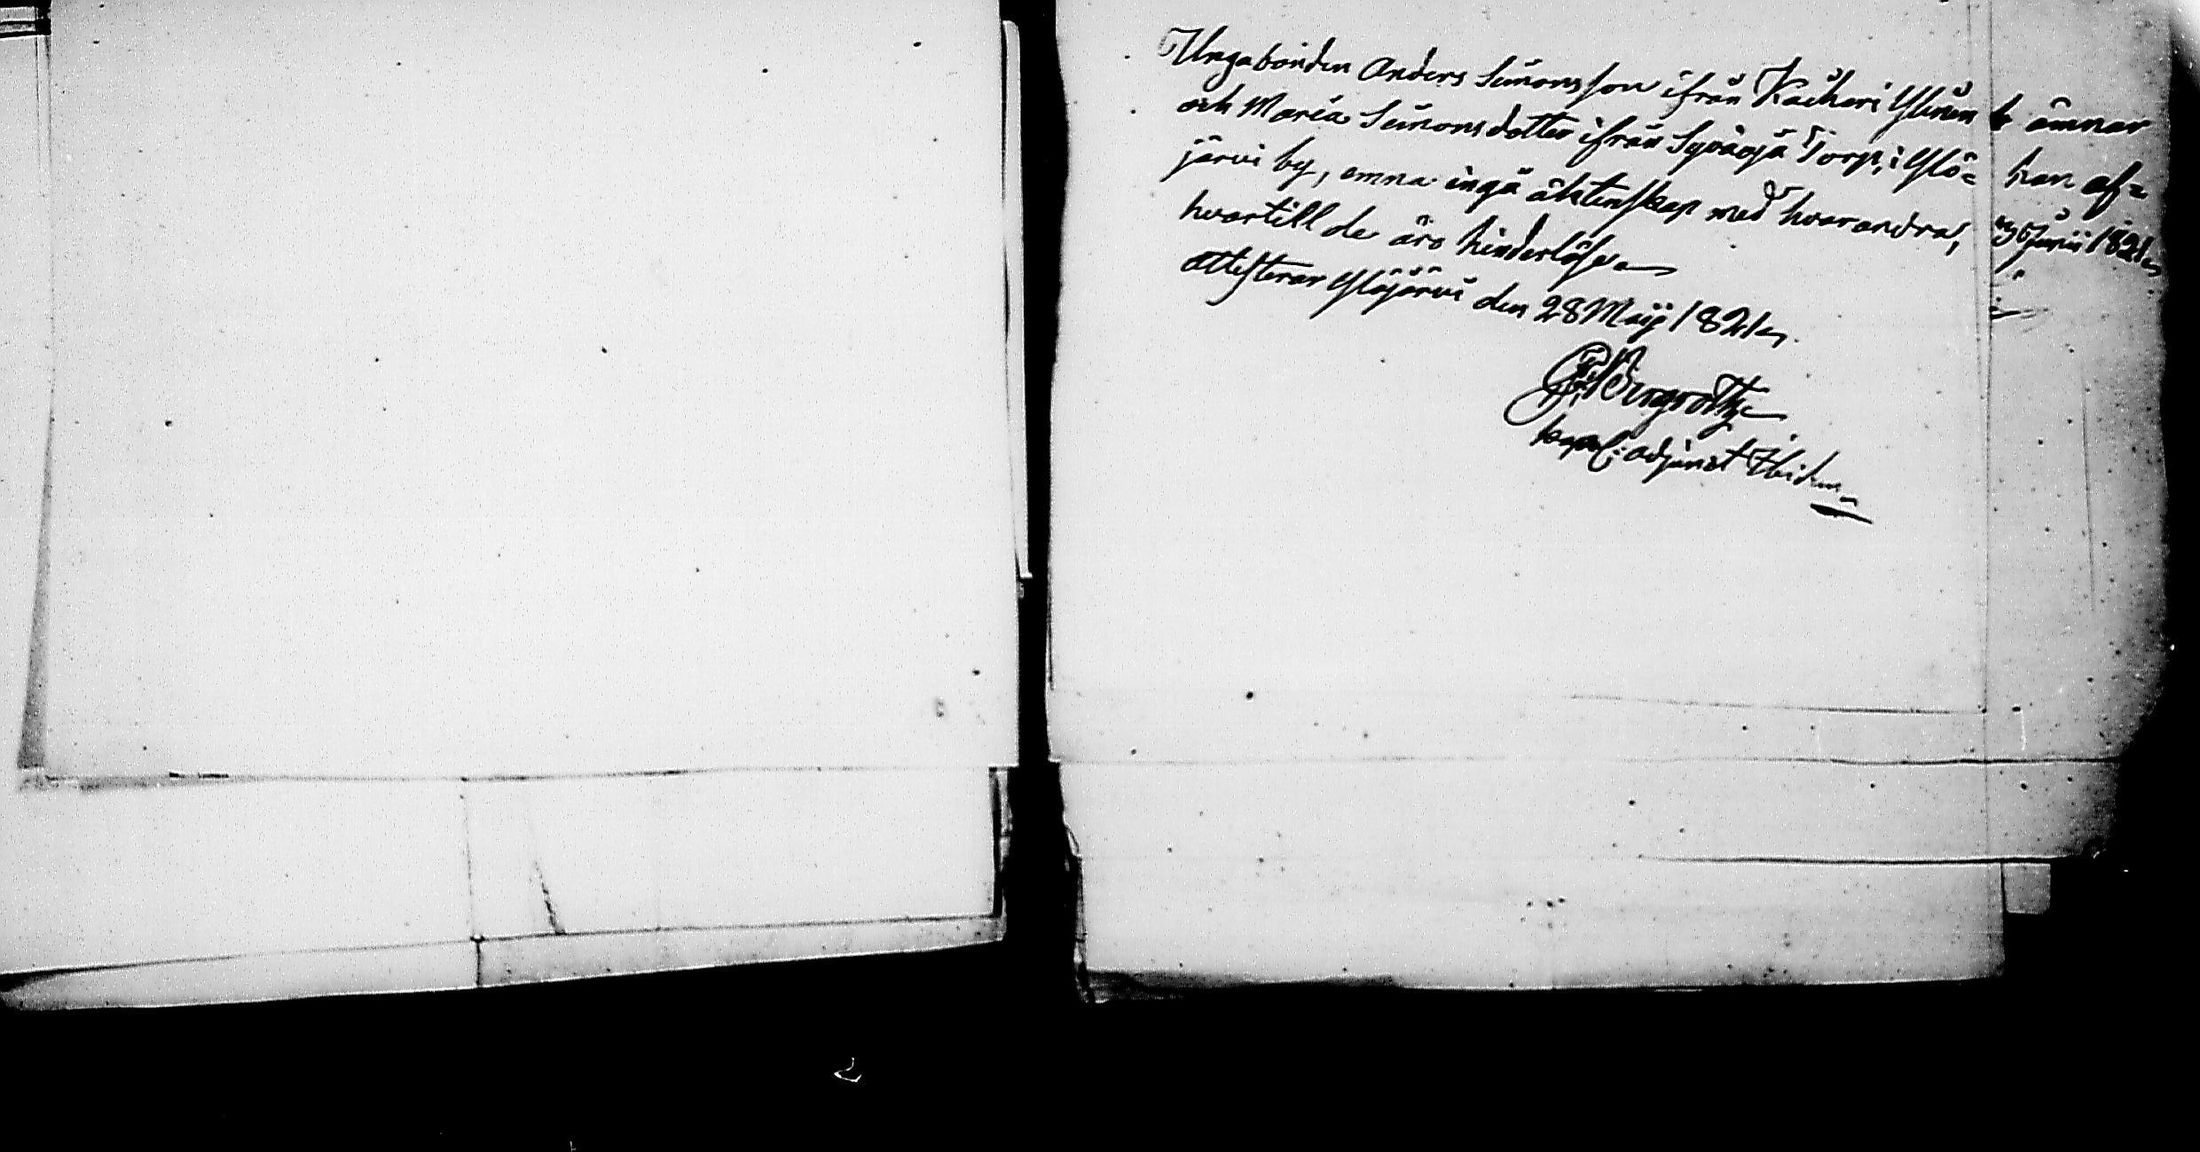 Ungabonden Anders Simonsson ifrån Kaihari Ylinen
och Maria Simonsdotter ifrån Torp, i Ylö=
järvi by, ämna ingå äktenskap med hvarandra,
hvartill de äro hinderlöse
attesterar Ylöjärvi den 28 Maji 1821
Bergroth
kapel: adjunct Ibidem
ämnar
han af=
Junii 1821